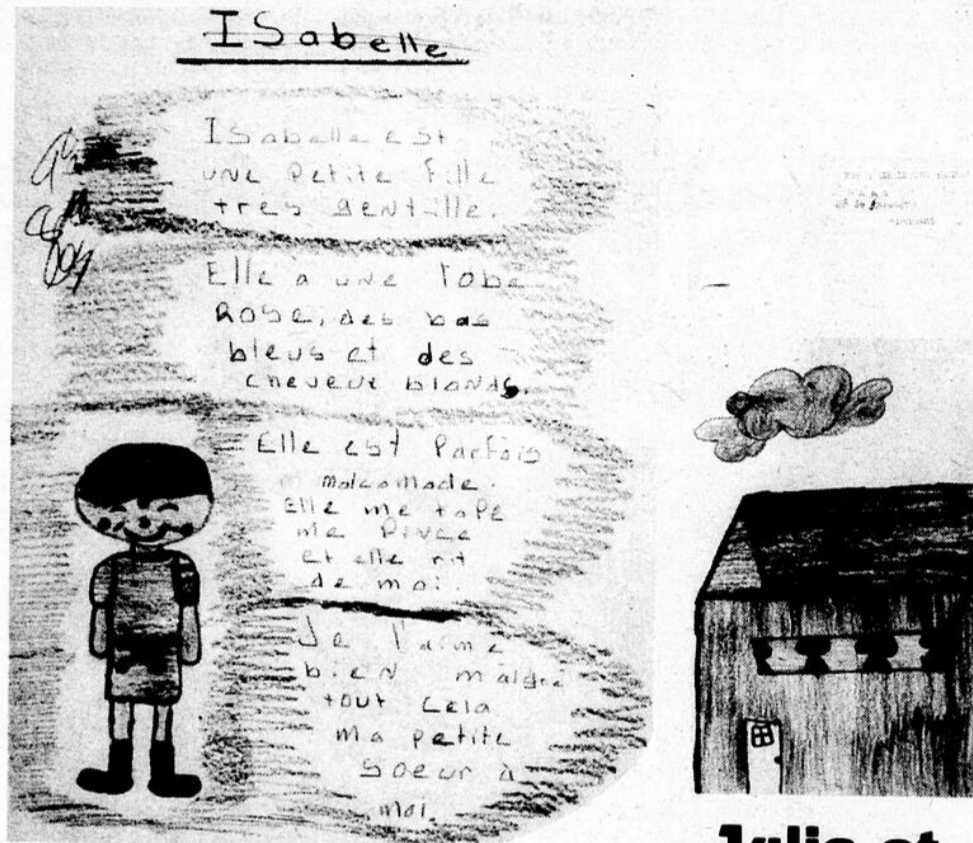 ISabelle
ISabelle est
une Petite fille
tres gentille.
Elle à une robe
Rose, des bas
bleus et des
cheveux blonds.
Elle est Parfois
malcomode.
Elle me tape
me Pince
et elle rit
de moi.
Je l'aime
bien malgré
tout cela
Ma petite
soeur à
moi.
Julie et